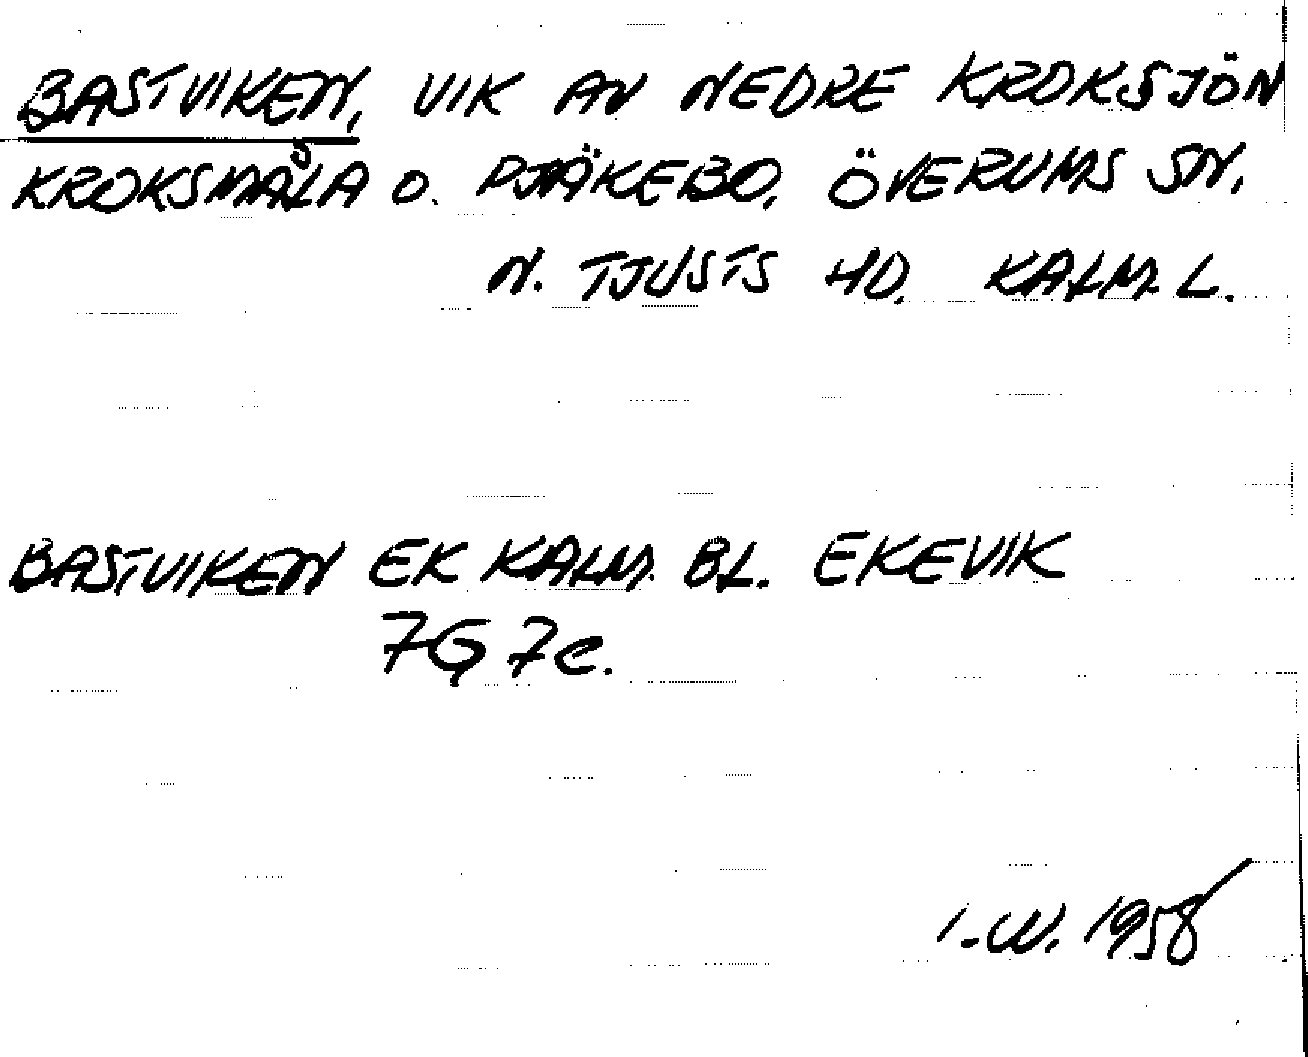 BASTVIKEN, VIK AV NEDRE KROKSJÖN
KROKSMÅLA O. DJÄKEBO, ÖVERUMS SN.
N. TJUSTS HD. KALM. L.
BASTVIKEN EK KALM. BL. EKEVIK
7G 7c.
1958